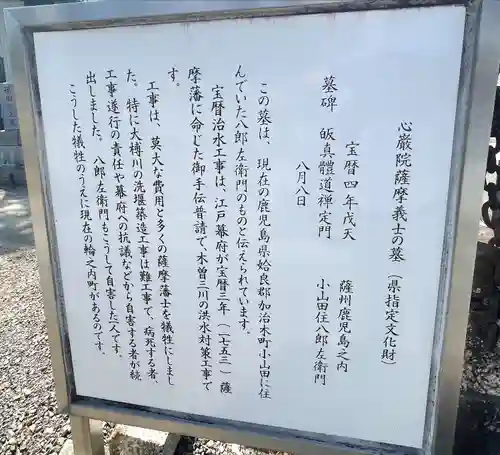 心厳院薩摩義士の墓（県指定文化財）
宝暦四年戊天　薩州鹿児島之内
墓碑　皈真體道禅定門　小山田住八郎左衛門
八月八日
この墓は、現在の鹿児島県姶良郡加治木町小山田に住
んでいた八郎左衛門のものと伝えられています。
宝暦治水工事は、江戸幕府が宝暦三年（一七五三）薩
摩藩に命じた御手伝普請で、木曽三川の洪水対策工事で
す。
工事は、莫大な費用と多くの薩摩藩士を犠牲にしまし
た。特に大榑川の洗堰築造工事は難工事で、病死する者、
工事遂行の責任や幕府への抗議などから自害する者が続
出しました。八郎左衛門もこうして自害した一人です。
こうした犠牲のうえに現在の輪之内町があるのです。